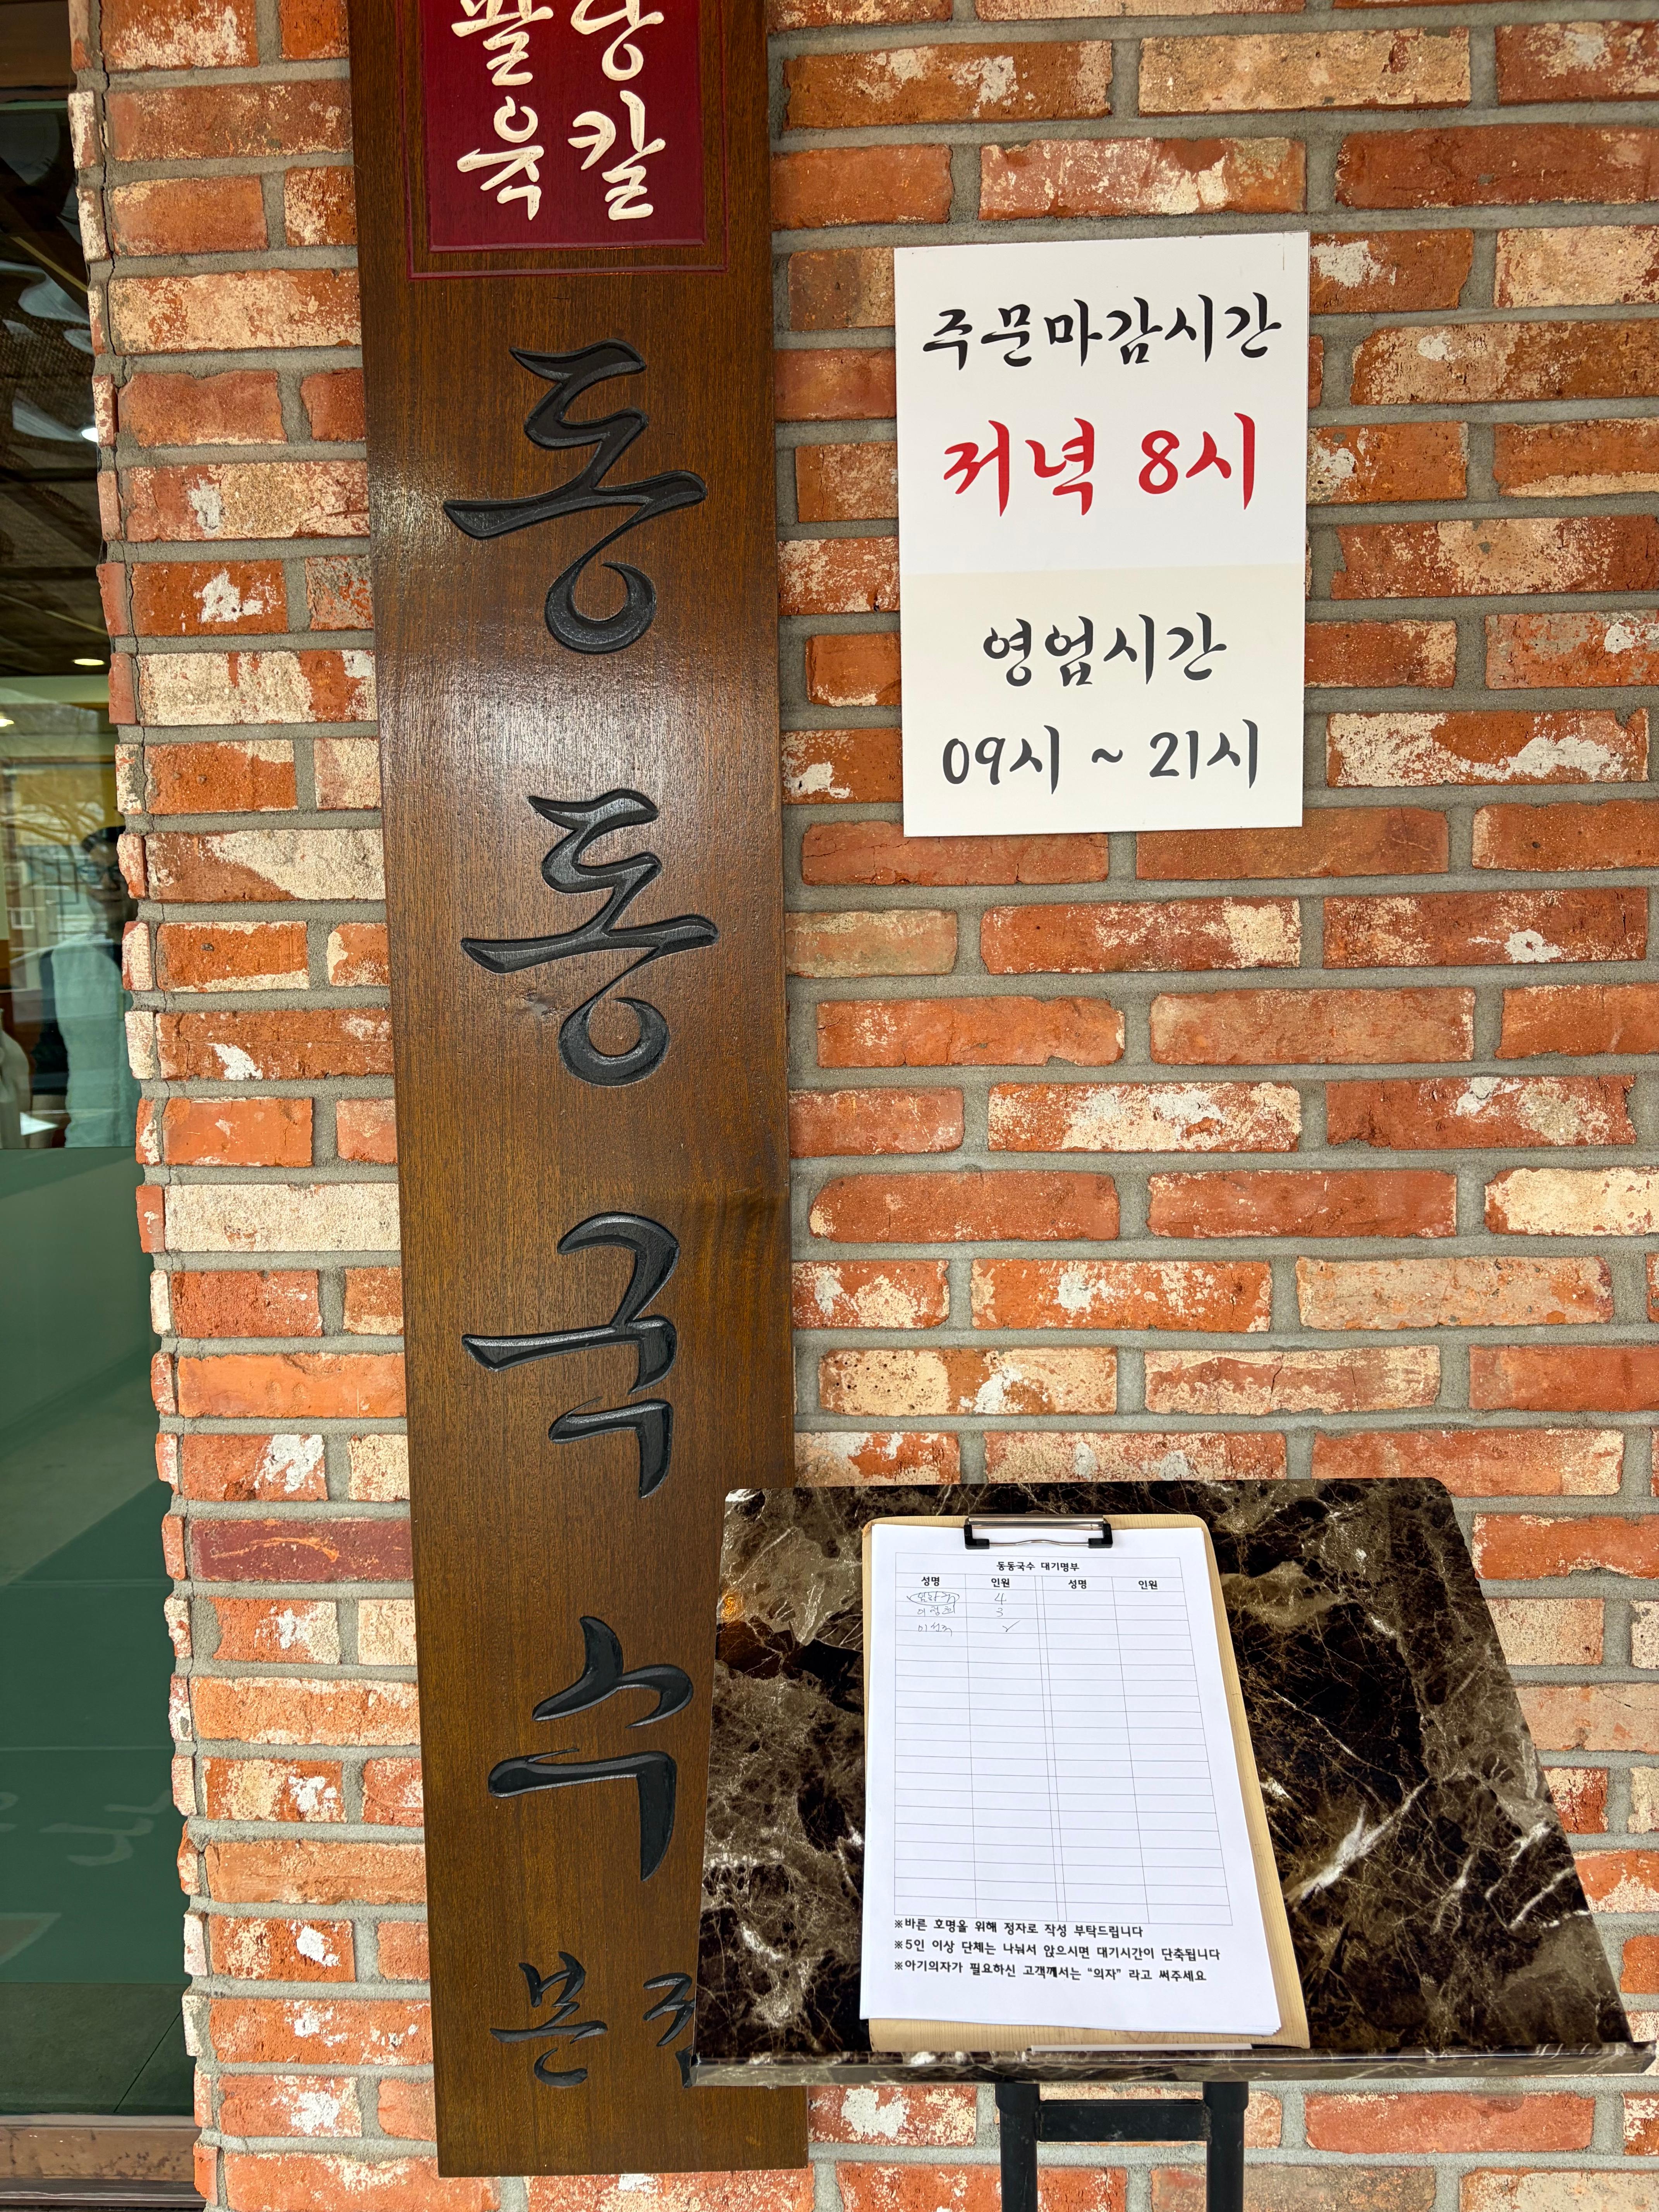 육 칼
동동국수
본
주문마감시간
저녁 8시
영업시간
09시 ~ 21시
동동국수 대기명부
성명 인원 성명 인원
4
3
※바른 호명을 위해 정자로 작성 부탁드립니다
※5인 이상 단체는 나눠서 앉으시면 대기시간이 단축됩니다
※아기의자가 필요하신 고객께서는 "의자" 라고 써주세요